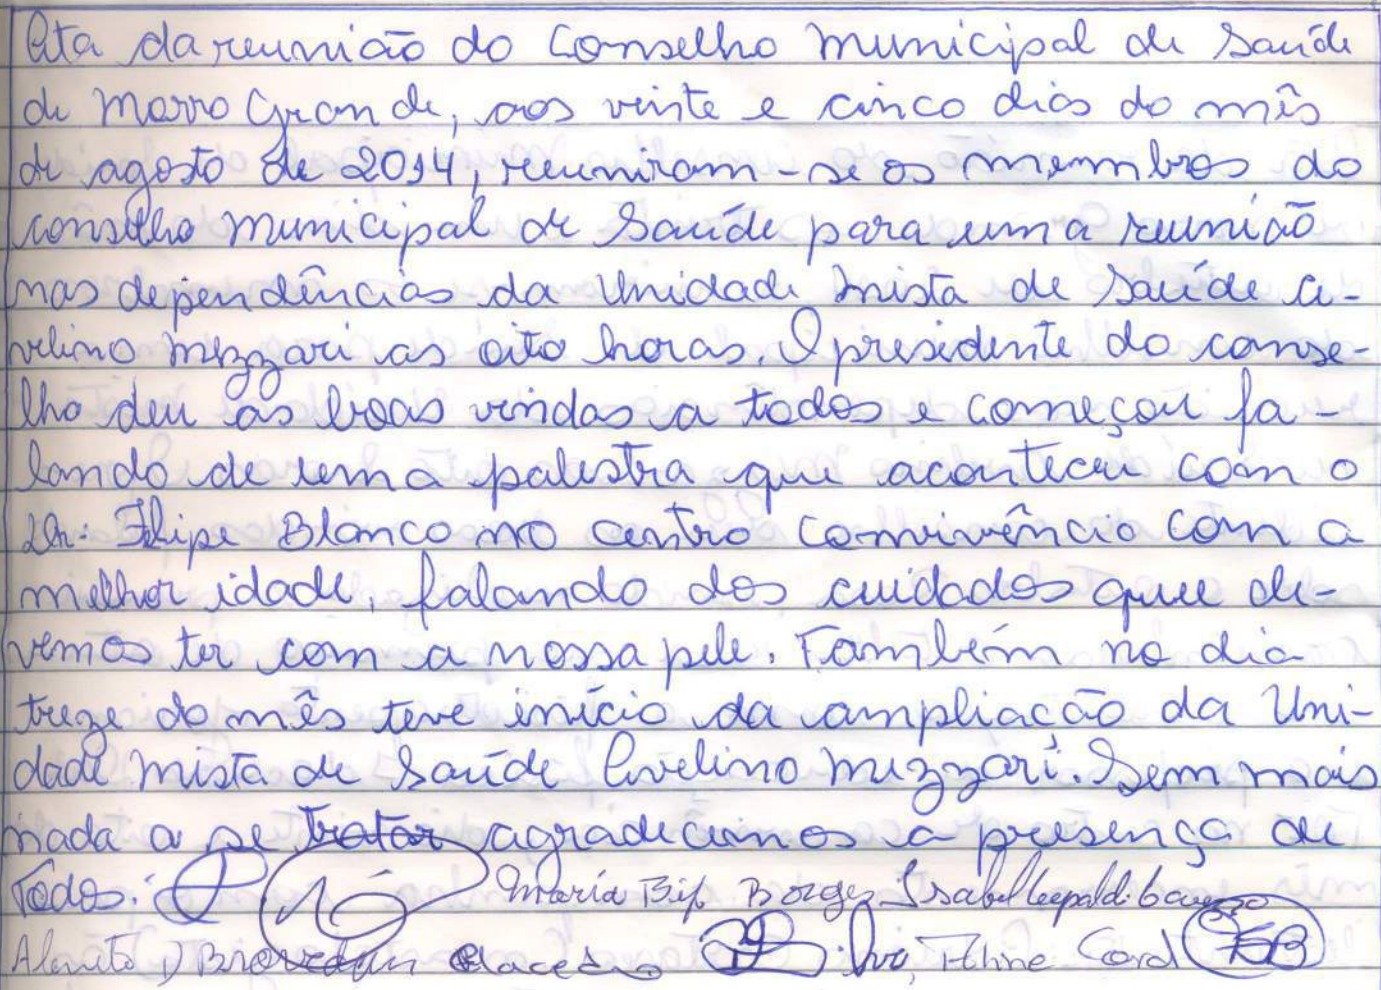 Ata da reunião do Conselho Municipal de Saúde
de Morro Grande, aos vinte e cinco dias do mês
de agosto de 2014, reuniram-se os membros do
conselho Municipal de Saúde para uma reunião
nas dependências da Unidade Mista de Saúde A-
velino Mezzari as oito horas. O presidente do conse-
lho deu as boas vindas a todos e começou fa-
lando de uma palestra que aconteceu com o
Dr. Felipe Blanco no centro Convivência com a
melhor idade, falando dos cuidados que de-
vemos ter com a nossa pele. Também no dia
treze do mês teve início da ampliação da Uni-
dade Mista de Saúde Avelino Mezzari. Sem mais
nada a se tratar agradecemos a presença de
Todos. Maria Bif Borges Isabel
Aline